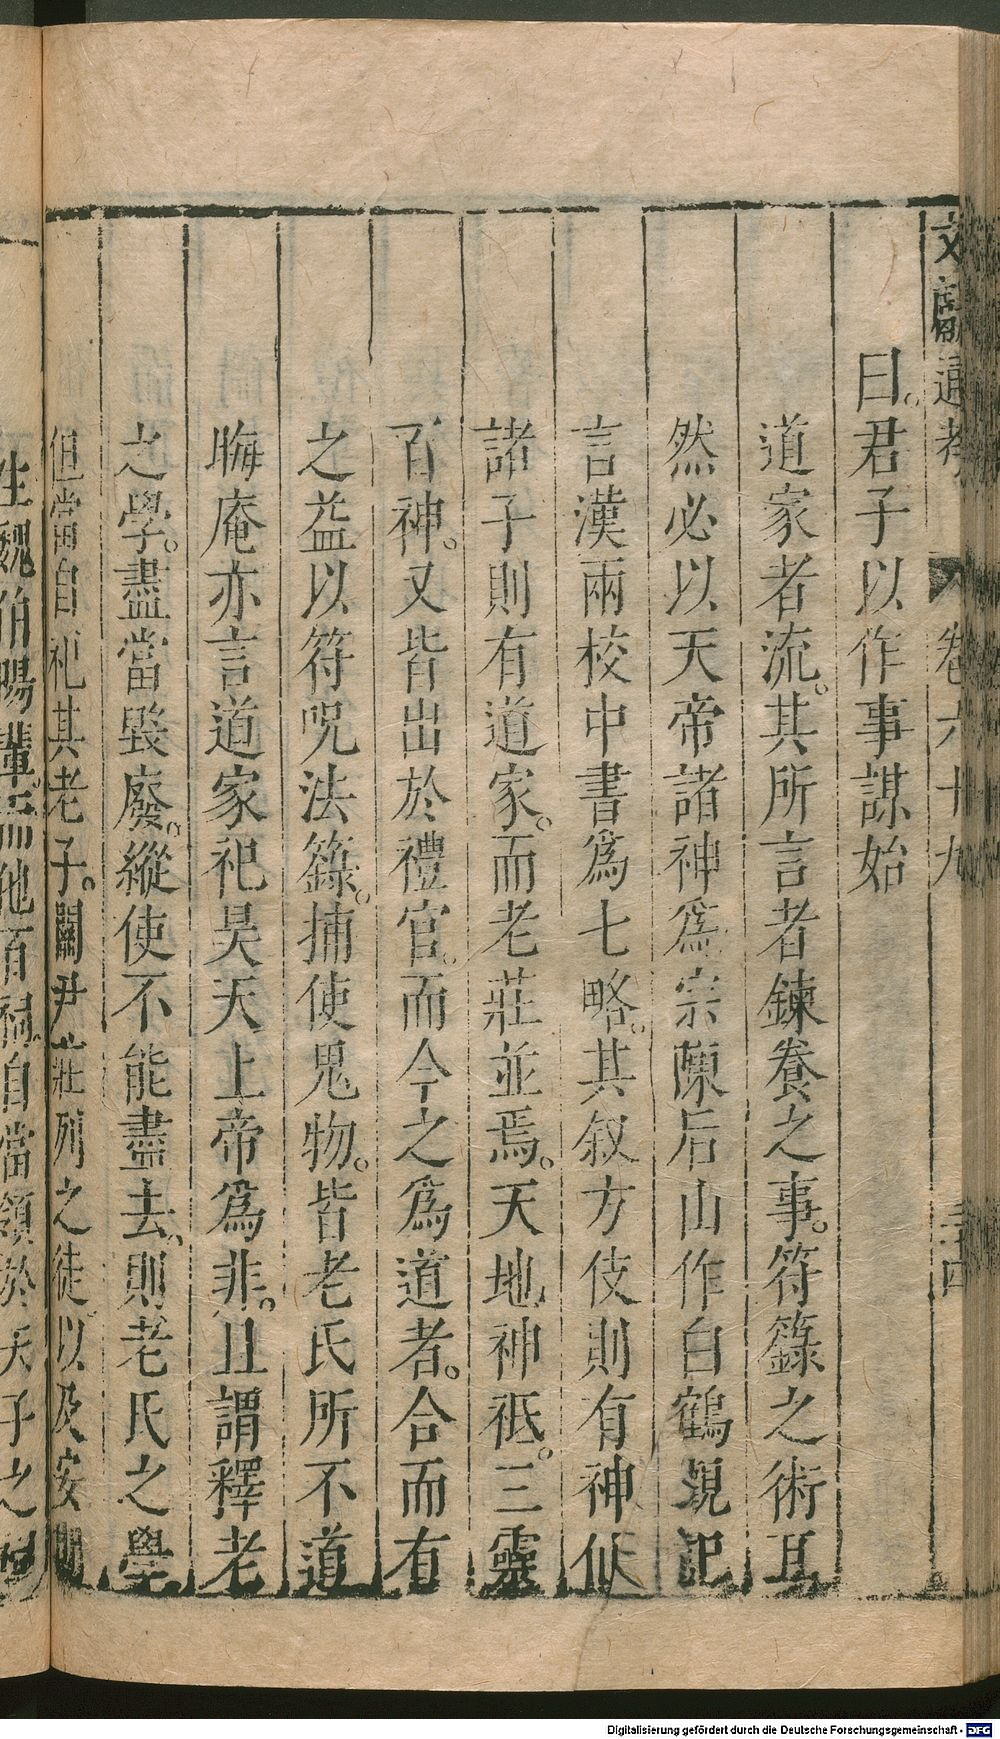 文獻通考 卷六十九 三十四
曰。君子以作事謀始
道家者流。其所言者鍊養之事。符籙之術耳
然必以天帝諸神爲宗陳后山作白鶴觀記
言漢兩校中書爲七略。其叙方伎則有神仙
諸子則有道家。而老莊並焉。天地神祇。三靈
百神。又皆出於禮官。而今之爲道者。合而有
之益以符呪法籙。捕使鬼物。皆老氏所不道
晦庵亦言道家祀昊天上帝爲非。且謂釋老
之學。盡當毀廢。縱使不能盡去。則老氏之學
但當自祀其老子。關尹莊列之徒以及安期
生魏伯陽輩。而他百祠。自當領於天子之
Digitalisierung gefördert durch die Deutsche Forschungsgemeinschaft - DFG